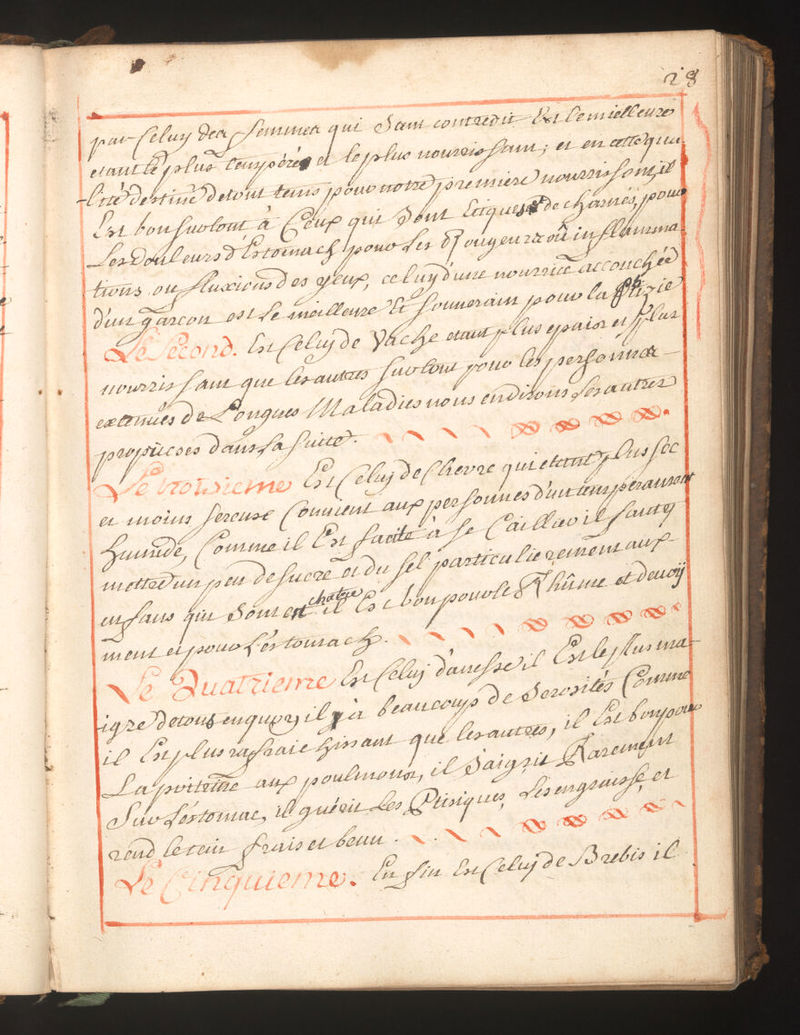 28
par Celuy des femmes qui Sans contredit Est Le meilleure
etant le plus temperée et le plus nourrissant; et en cette qua
-lité destiné de tout tems pour notre premiere nourrissont, il
Est bon surtout à Ceux qui Sont Etiques de charnés, pour
Les Douleurs d'Estomach pour les Rougeurs ou inflamma
tions ou fluxions des yeux, celuy d'une nourrice accouchée
d'un garcon est le meilleure Et souverain pour la Ptizie
Le Second. Est Celuy de Vache etant plus epais et plus
nourrissant que les autres surtout pour les personnes
extenuées de Longues Maladies nous en dirons ses autres
propriétés dans la suitte.
Le troisieme Est Celuy de Chevre qui etant plus sec
et moins sereuse Convient aux personnes d'un temperament
humide, Comme il Est facile à se Cailler il faut y
mettre un peu de sucre et du sel particulierement aux
enfans qui Sont en chatre il Est bon pour le Rhûme et devoy
ment et pour l'estomach.
Le Quatrieme Est Celuy d'anesse il Est le plus ma-
igre de tous en quoy il y à beaucoup de Serosités Comme
il Est plus rafraichissant que les autres, il Est bon pour
La poitrine aux poulmons, il S'aigrit Rarement
Sur L'estomac, il guérit Les Ptisiques, Les engraisse, et
rend le tein frais et beau.
Le Cinquieme. Enfin Est Celuy de Brebis il